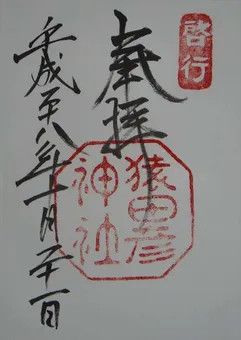 啓行
奉拝
猿田彦
神社
平成二十八年十一月二十一日